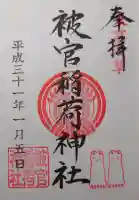 奉拝
被官稲荷神社
平成三十一年一月五日